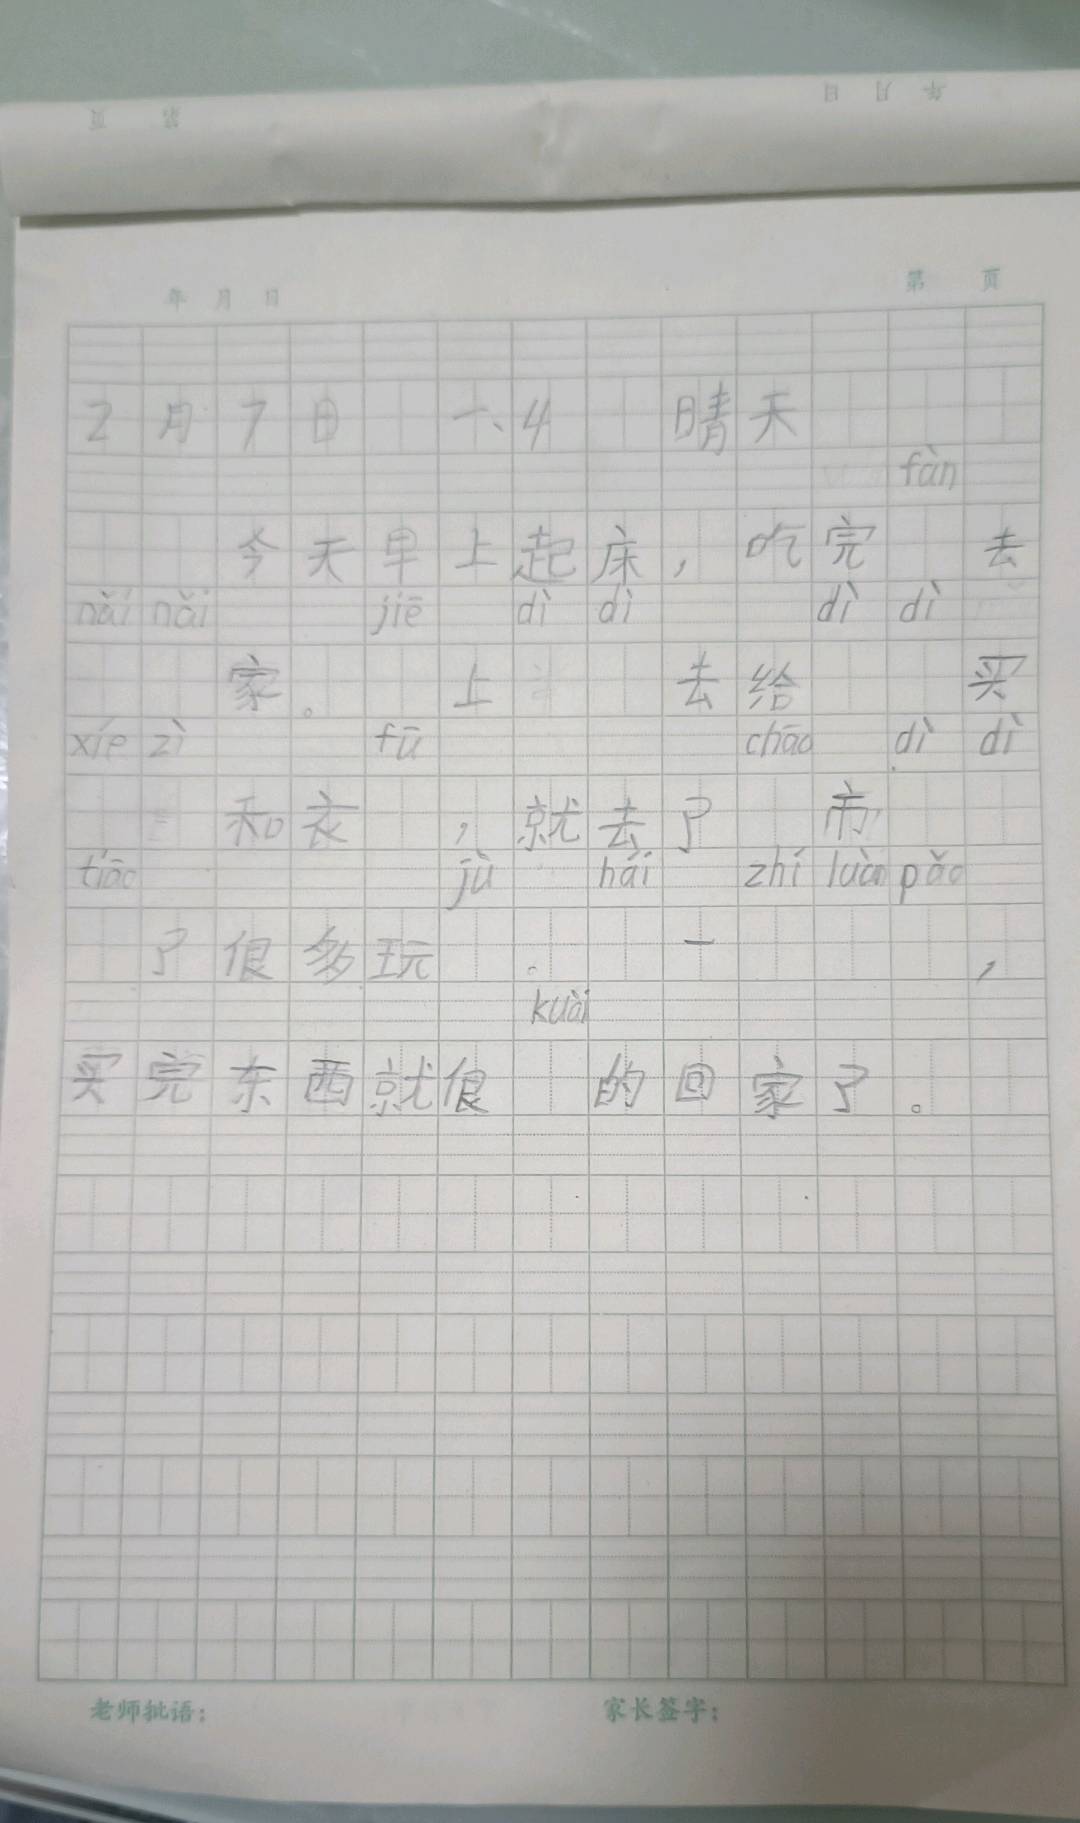 年 月 日 第 页
2月7日 一、4 晴天
fàn
今天早上起床，吃完 去
nǎi nǎi jiē dì dì dì dì
家。 上 去给 买
xíe zì fū chāo dì dì
和衣 ，就去了 市
tiāo jù hái zhí luàn pǎo
了很多玩 。 一 ，
kuài
买完东西就很 的回家了。
老师批语： 家长签字：